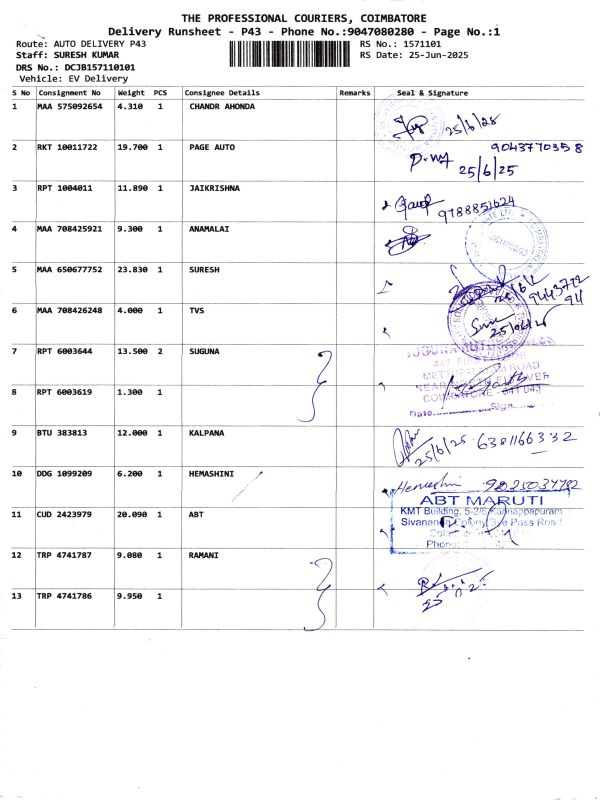 THE PROFESSIONAL COURIERS, COIMBATORE
Delivery Runsheet - P43 - Phone No.:9047080280 - Page No.:1
Route: AUTO DELIVERY P43 RS No.: 1571101
Staff: SURESH KUMAR RS Date: 25-Jun-2025
DRS No.: DCJB157110101
Vehicle: EV Delivery
S No Consignment No Weight PCS Consignee Details Remarks Seal & Signature
1 MAA 575092654 4.310 1 CHANDR AHONDA 25/6/25
2 RKT 10011722 19.700 1 PAGE AUTO 9043770358
25/6/25
3 RPT 1004011 11.890 1 JAIKRISHNA 9788851624
4 MAA 708425921 9.300 1 ANAMALAI
5 MAA 650677752 23.830 1 SURESH
6 MAA 708426248 4.000 1 TVS
7 RPT 6003644 13.500 2 SUGUNA
8 RPT 6003619 1.300 1
COIMBATORE
Date Sign
9 BTU 383813 12.000 1 KALPANA 25/6/25 6381166332
10 DDG 1099209 6.200 1 HEMASHINI Hemashini 9025034782
ABT MARUTI
11 CUD 2423979 20.090 1 ABT KMT Building, Kannappapuram
Sivananda Colony Bye Pass Road
Phone:
12 TRP 4741787 9.080 1 RAMANI
13 TRP 4741786 9.950 1